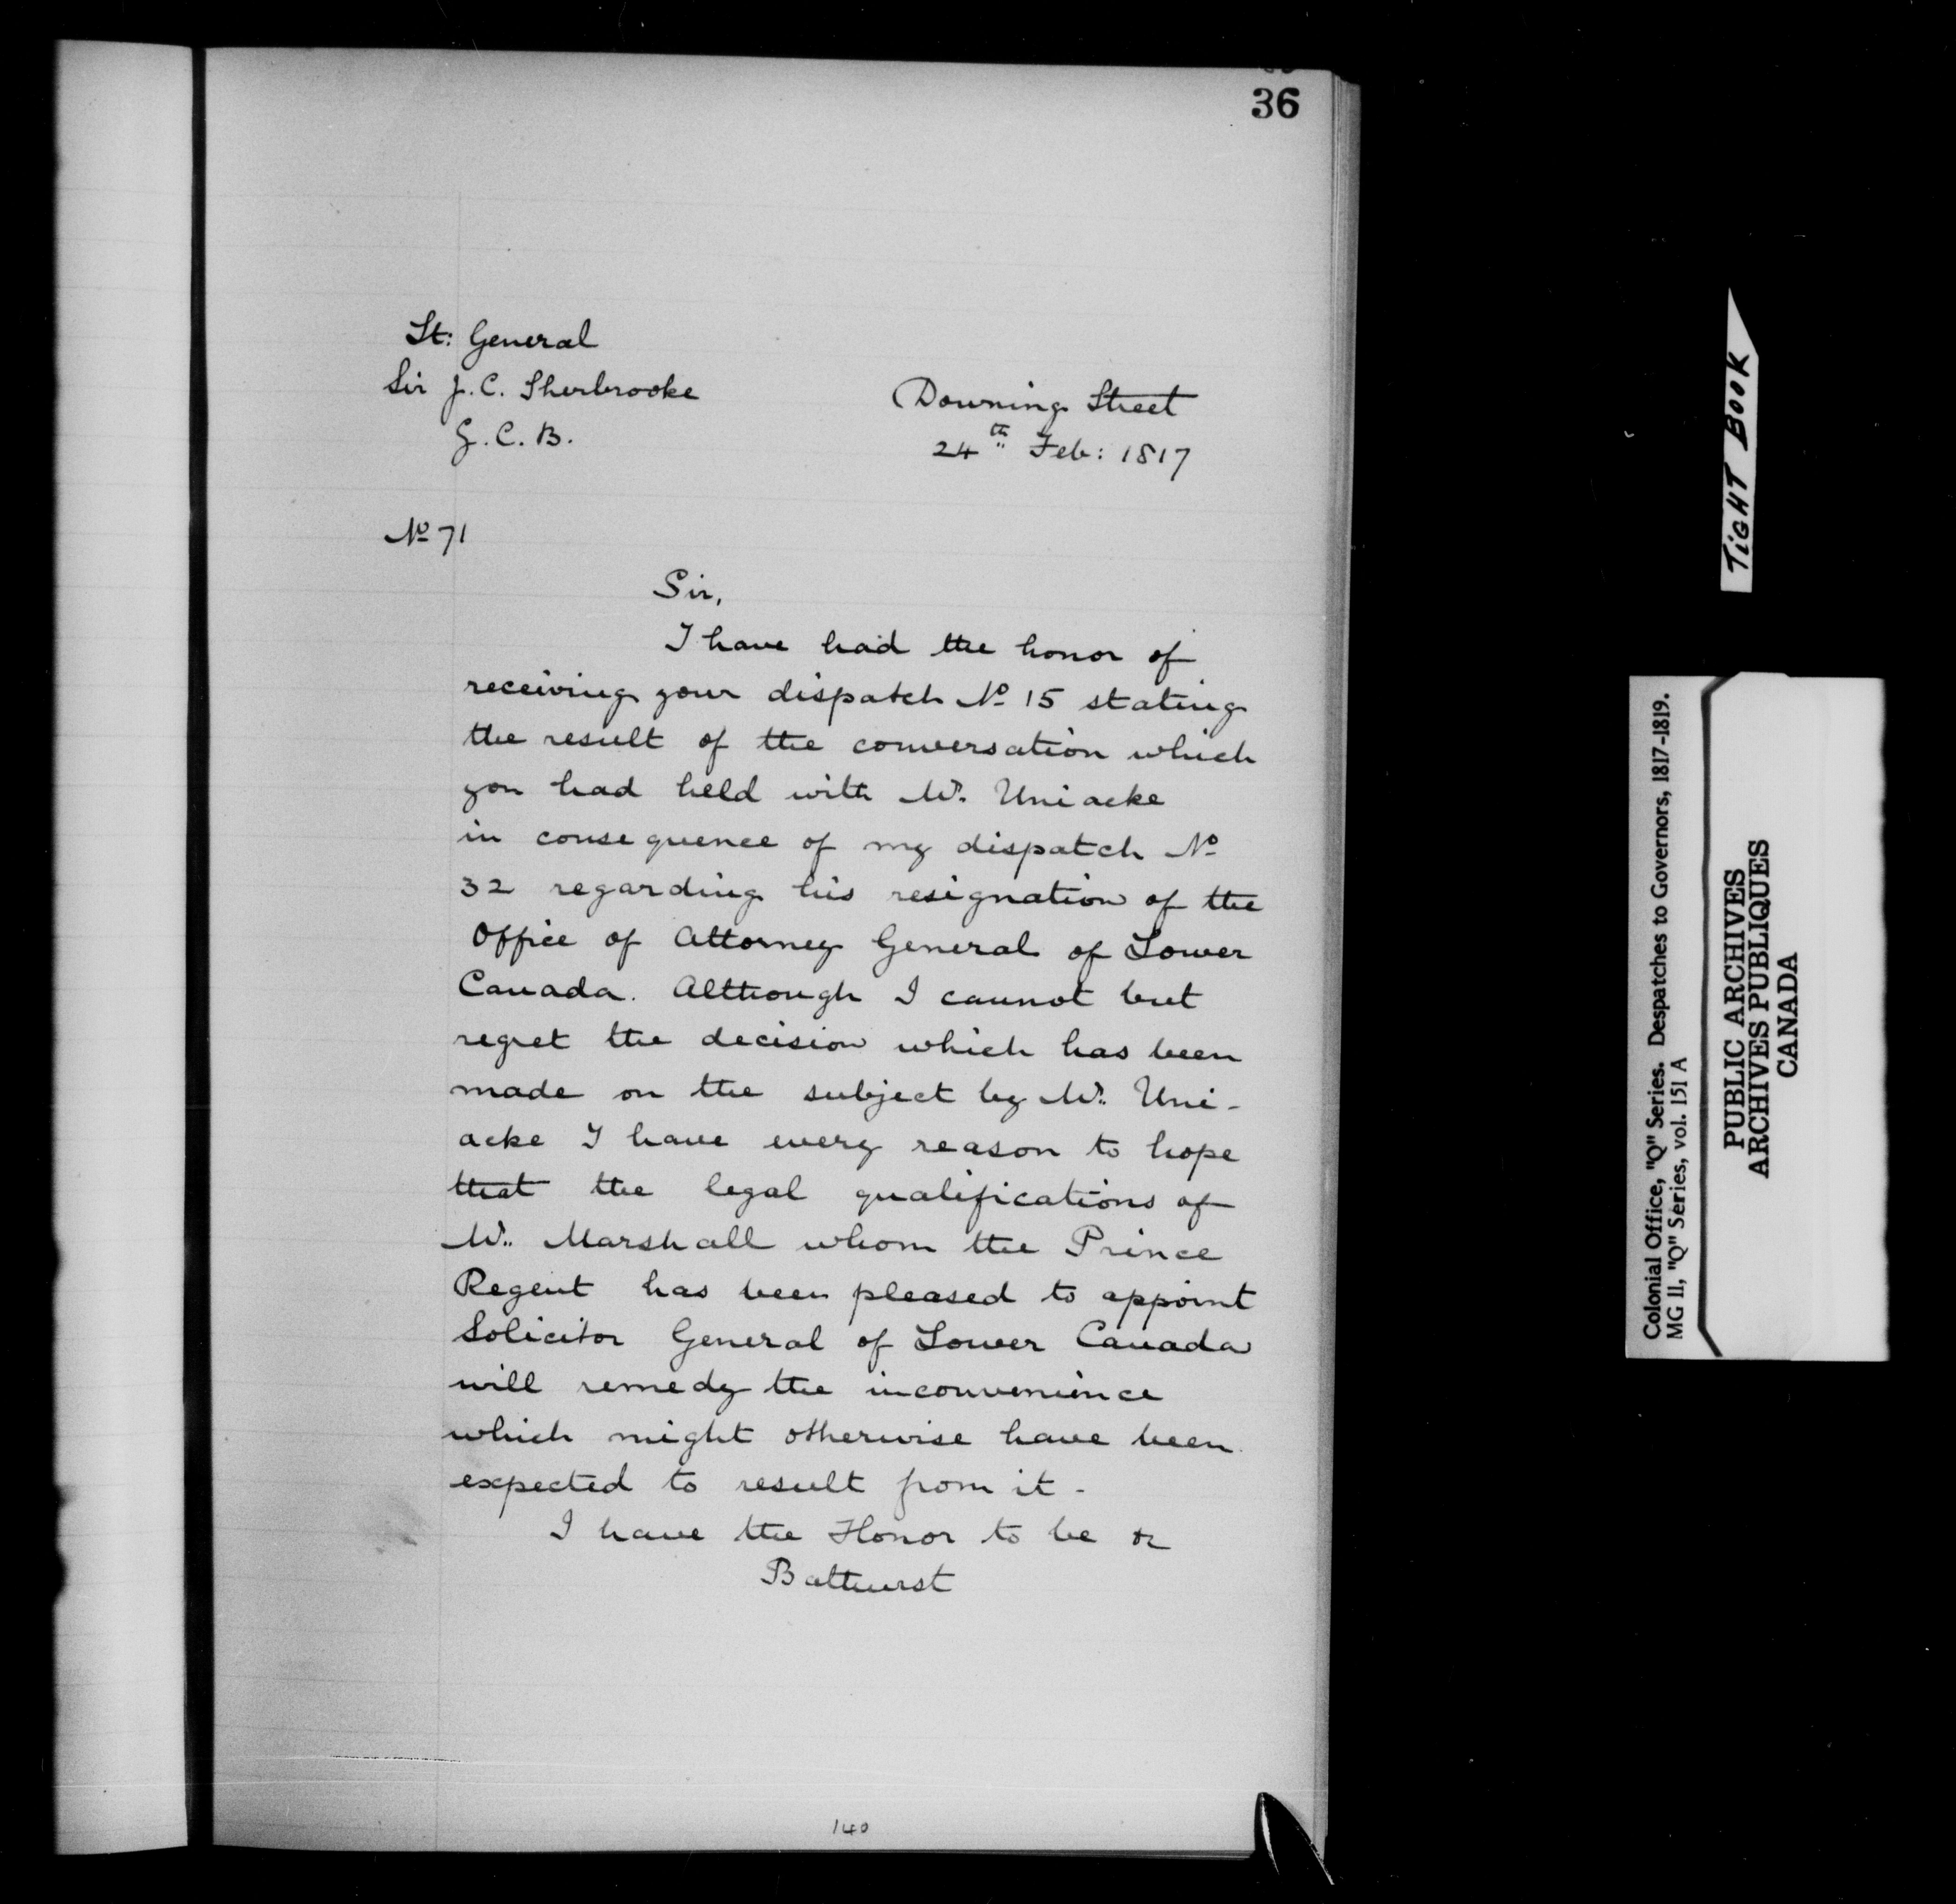 36
Lt: General
Sir J. C. Sherbrooke
G. C. B.
Downing Street
24th Feb: 1817
No 71
Sir,
I have had the honor of
receiving your dispatch No 15 stating
the result of the conversation which
you had held with Mr. Uniacke
in consequence of my dispatch No
32 regarding his resignation of the
Office of Attorney General of Lower
Canada. Although I cannot but
regret the decision which has been
made on the subject by Mr. Uni-
acke I have every reason to hope
that the legal qualifications of
Mr. Marshall whom the Prince
Regent has been pleased to appoint
Solicitor General of Lower Canada
will remedy the inconvenience
which might otherwise have been
expected to result from it -
I have the Honor to be &c
Bathurst
140
TIGHT BOOK
Colonial Office, "Q" Series. Despatches to Governors, 1817-1819.
MG 11, "Q" Series, vol. 151 A
PUBLIC ARCHIVES
ARCHIVES PUBLIQUES
CANADA